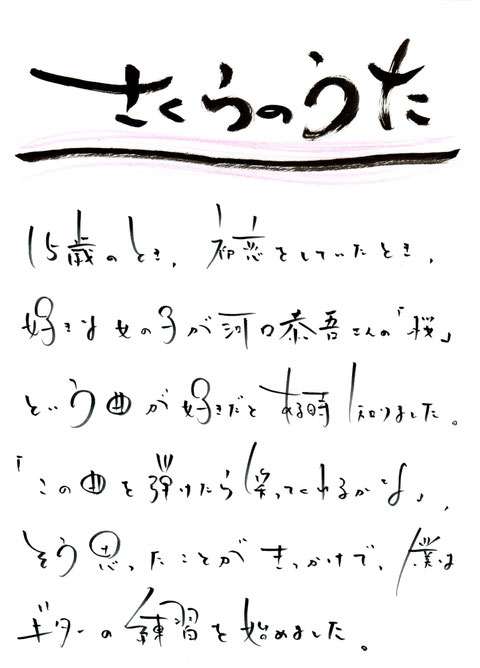 さくらのうた
15歳のとき、初恋をしていたとき、
好きな女の子が河口恭吾さんの「桜」
という曲が好きだとある時知りました。
「この曲を弾けたら笑ってくれるかな」、
そう思ったことがきっかけで、僕は
ギターの練習を始めました。